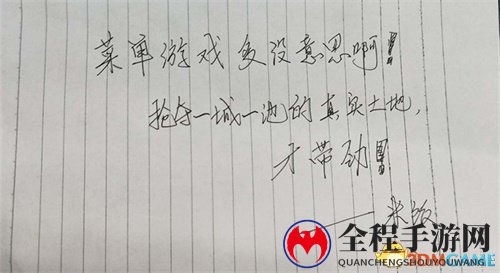 菜单游戏多没意思啊!
抢夺一城一池的真实土地,
才带劲!
——米饭
全程手游网
QUANCHENGSHOUYOUWANG
3DMGAME